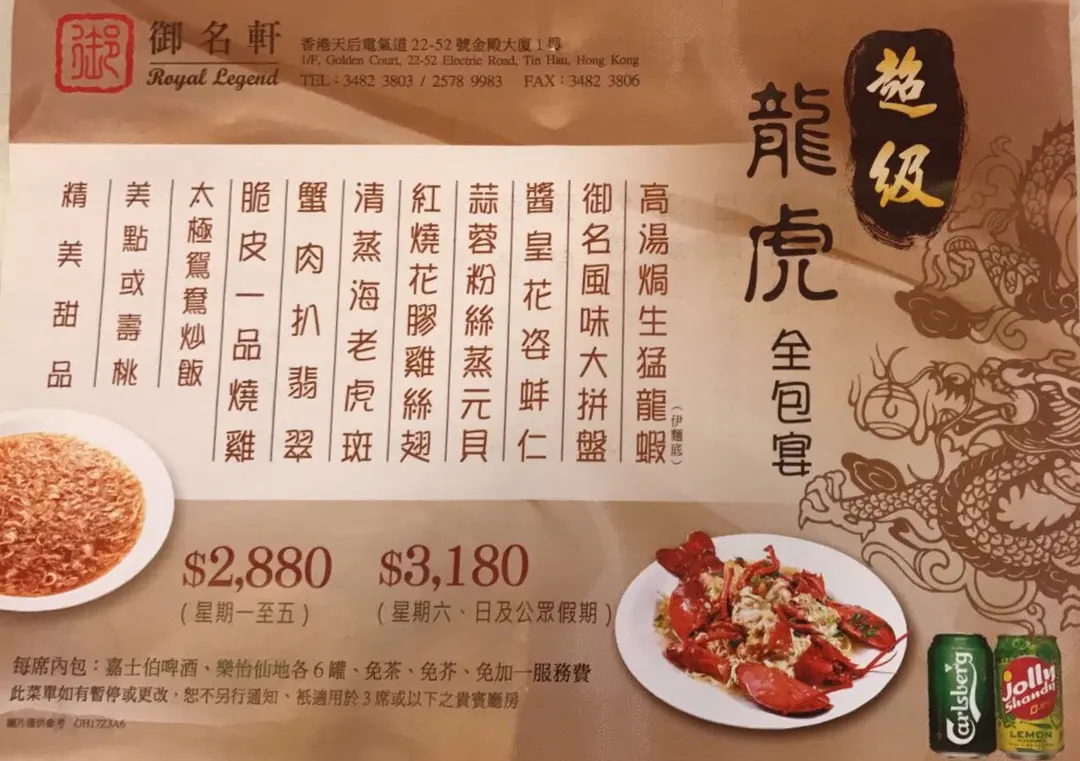 御
御名軒
Royal Legend
香港天后電氣道 22-52 號金殿大廈 1 樓
1/F, Golden Court, 22-52 Electric Road, Tin Hau, Hong Kong
TEL：3482 3803 / 2578 9983 FAX：3482 3806
超级
龍虎全包宴
高湯焗生猛龍蝦（伊麵底）
御名風味大拼盤
醬皇花姿蚌仁
蒜蓉粉絲蒸元貝
紅燒花膠雞絲翅
清蒸海老虎斑
蟹肉扒翡翠
脆皮一品燒雞
太極鴛鴦炒飯
美點或壽桃
精美甜品
$2,880
（星期一至五）
$3,180
（星期六、日及公眾假期）
每席內包：嘉士伯啤酒、樂怡仙地各 6 罐、免茶、免芥、免加一服務費
此菜單如有暫停或更改，恕不另行通知、祇適用於 3 席或以下之貴賓廳房
圖片僅供參考 OH17Z3A6
Carlsberg
Jolly
Shandy
LEMON